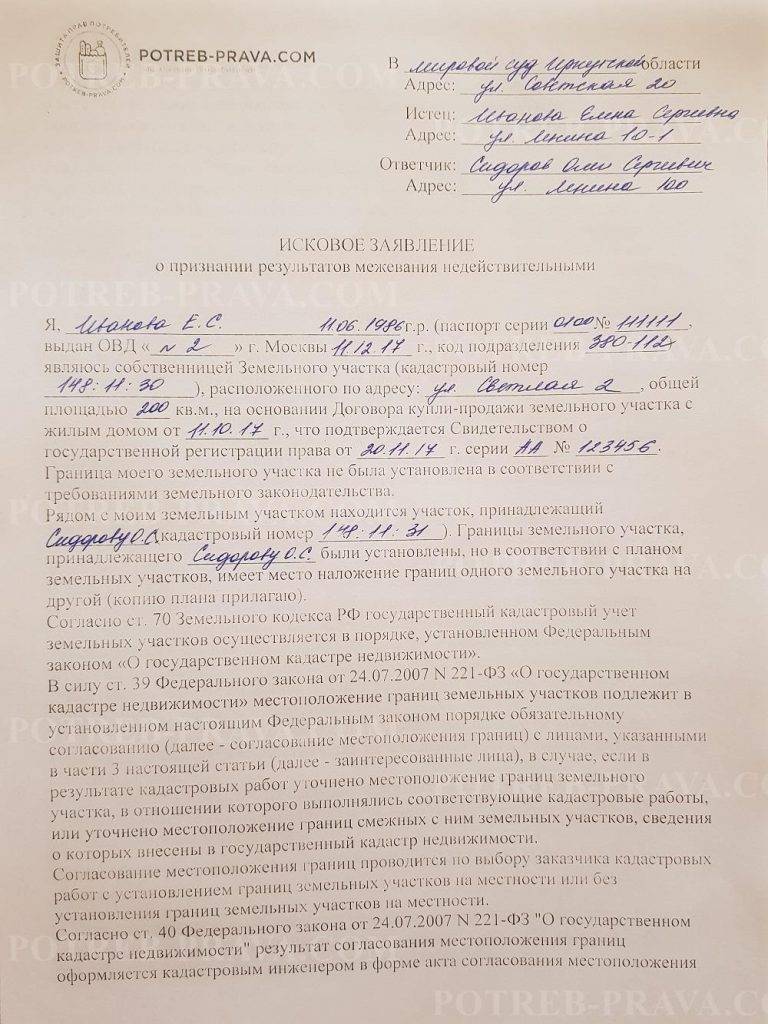 ЗАЩИТА ПРАВ ПОТРЕБИТЕЛЕЙ
POTREB-PRAVA.COM
POTREB-PRAVA.COM
В мировой суд Иркутской области
Адрес: ул. Советская 20
Истец: Иванова Елена Сергеевна
Адрес: ул. Ленина 10-1
Ответчик: Сидоров Олег Сергеевич
Адрес: ул. Ленина 100
ИСКОВОЕ ЗАЯВЛЕНИЕ
о признании результатов межевания недействительными
Я, Иванова Е.С. 11.06.1986 г.р. (паспорт серии 0100 № 111111,
выдан ОВД « №2 » г. Москвы 11.12.17 г., код подразделения 380-112)
являюсь собственницей Земельного участка (кадастровый номер
148:11:30), расположенного по адресу: ул. Светлая 2, общей
площадью 200 кв.м., на основании Договора купли-продажи земельного участка с
жилым домом от 11.10.17 г., что подтверждается Свидетельством о
государственной регистрации права от 20.11.17 г. серии АА № 123456.
Граница моего земельного участка не была установлена в соответствии с
требованиями земельного законодательства.
Рядом с моим земельным участком находится участок, принадлежащий
Сидорову О.С. (кадастровый номер 148:11:31). Границы земельного участка,
принадлежащего Сидорову О.С. были установлены, но в соответствии с планом
земельных участков, имеет место наложение границ одного земельного участка на
другой (копию плана прилагаю).
Согласно ст. 70 Земельного кодекса РФ государственный кадастровый учет
земельных участков осуществляется в порядке, установленном Федеральным
законом «О государственном кадастре недвижимости».
В силу ст. 39 Федерального закона от 24.07.2007 N 221-ФЗ «О государственном
кадастре недвижимости» местоположение границ земельных участков подлежит в
установленном настоящим Федеральным законом порядке обязательному
согласованию (далее - согласование местоположения границ) с лицами, указанными
в части 3 настоящей статьи (далее - заинтересованные лица), в случае, если в
результате кадастровых работ уточнено местоположение границ земельного
участка, в отношении которого выполнялись соответствующие кадастровые работы,
или уточнено местоположение границ смежных с ним земельных участков, сведения
о которых внесены в государственный кадастр недвижимости.
Согласование местоположения границ проводится по выбору заказчика кадастровых
работ с установлением границ земельных участков на местности или без
установления границ земельных участков на местности.
Согласно ст. 40 Федерального закона от 24.07.2007 N 221-ФЗ "О государственном
кадастре недвижимости" результат согласования местоположения границ
оформляется кадастровым инженером в форме акта согласования местоположения
POTREB-PRAVA.COM